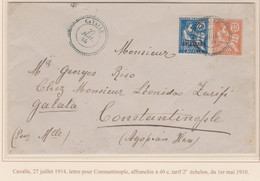 CAVALLE
Monsieur
Mr Georges Riso
Chez Monsieur Léonidas Zarifi
Galata
Constantinople
(Agopian Han)
Cavalle, 27 juillet 1914, lettre pour Constantinople, affranchie à 40 c, tarif 2e échelon, du 1er mai 1910.